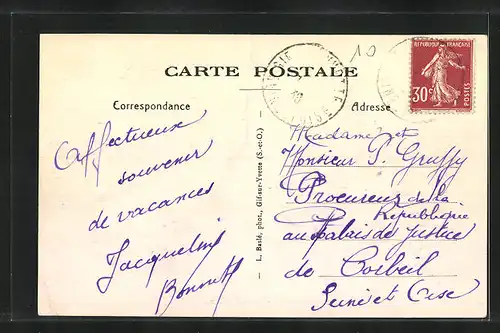 10
CARTE POSTALE
REPUBLIQUE FRANÇAISE
30c
POSTES
Correspondance
Adresse
Affectueux
souvenir
de vacances
Jacqueline
L. Baslé, phot., Gif-sur-Yvette (S.-et-O.)
Madame et
Monsieur P. Gruffy
Procureur de la
République
au Palais de Justice
de Corbeil
Seine et Oise